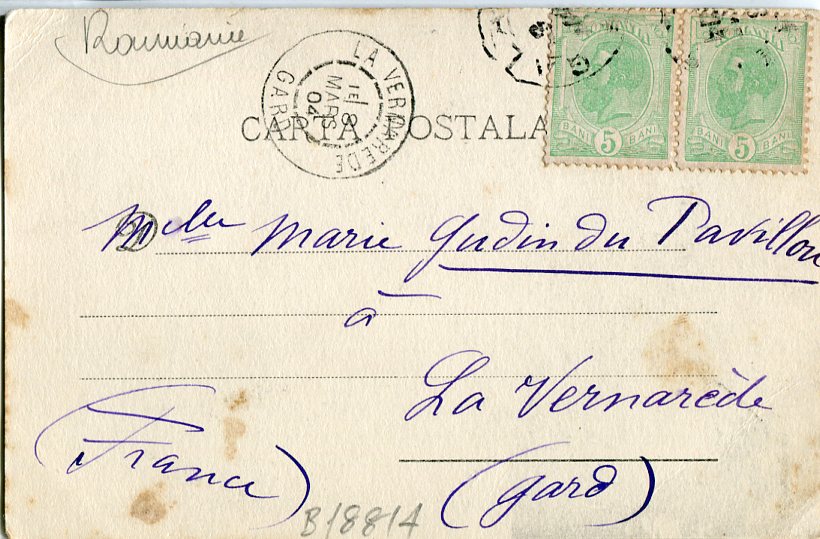 Roumanie
LA VERNAREDE
1E
8
MARS
04
GARD
ROMANIA
BANI 5 BANI
BANI 5 BANI
CARTA POSTALA
Melle Marie Gudin du Pavillon
à
La Vernarède
(France)
(Gard)
B/8814